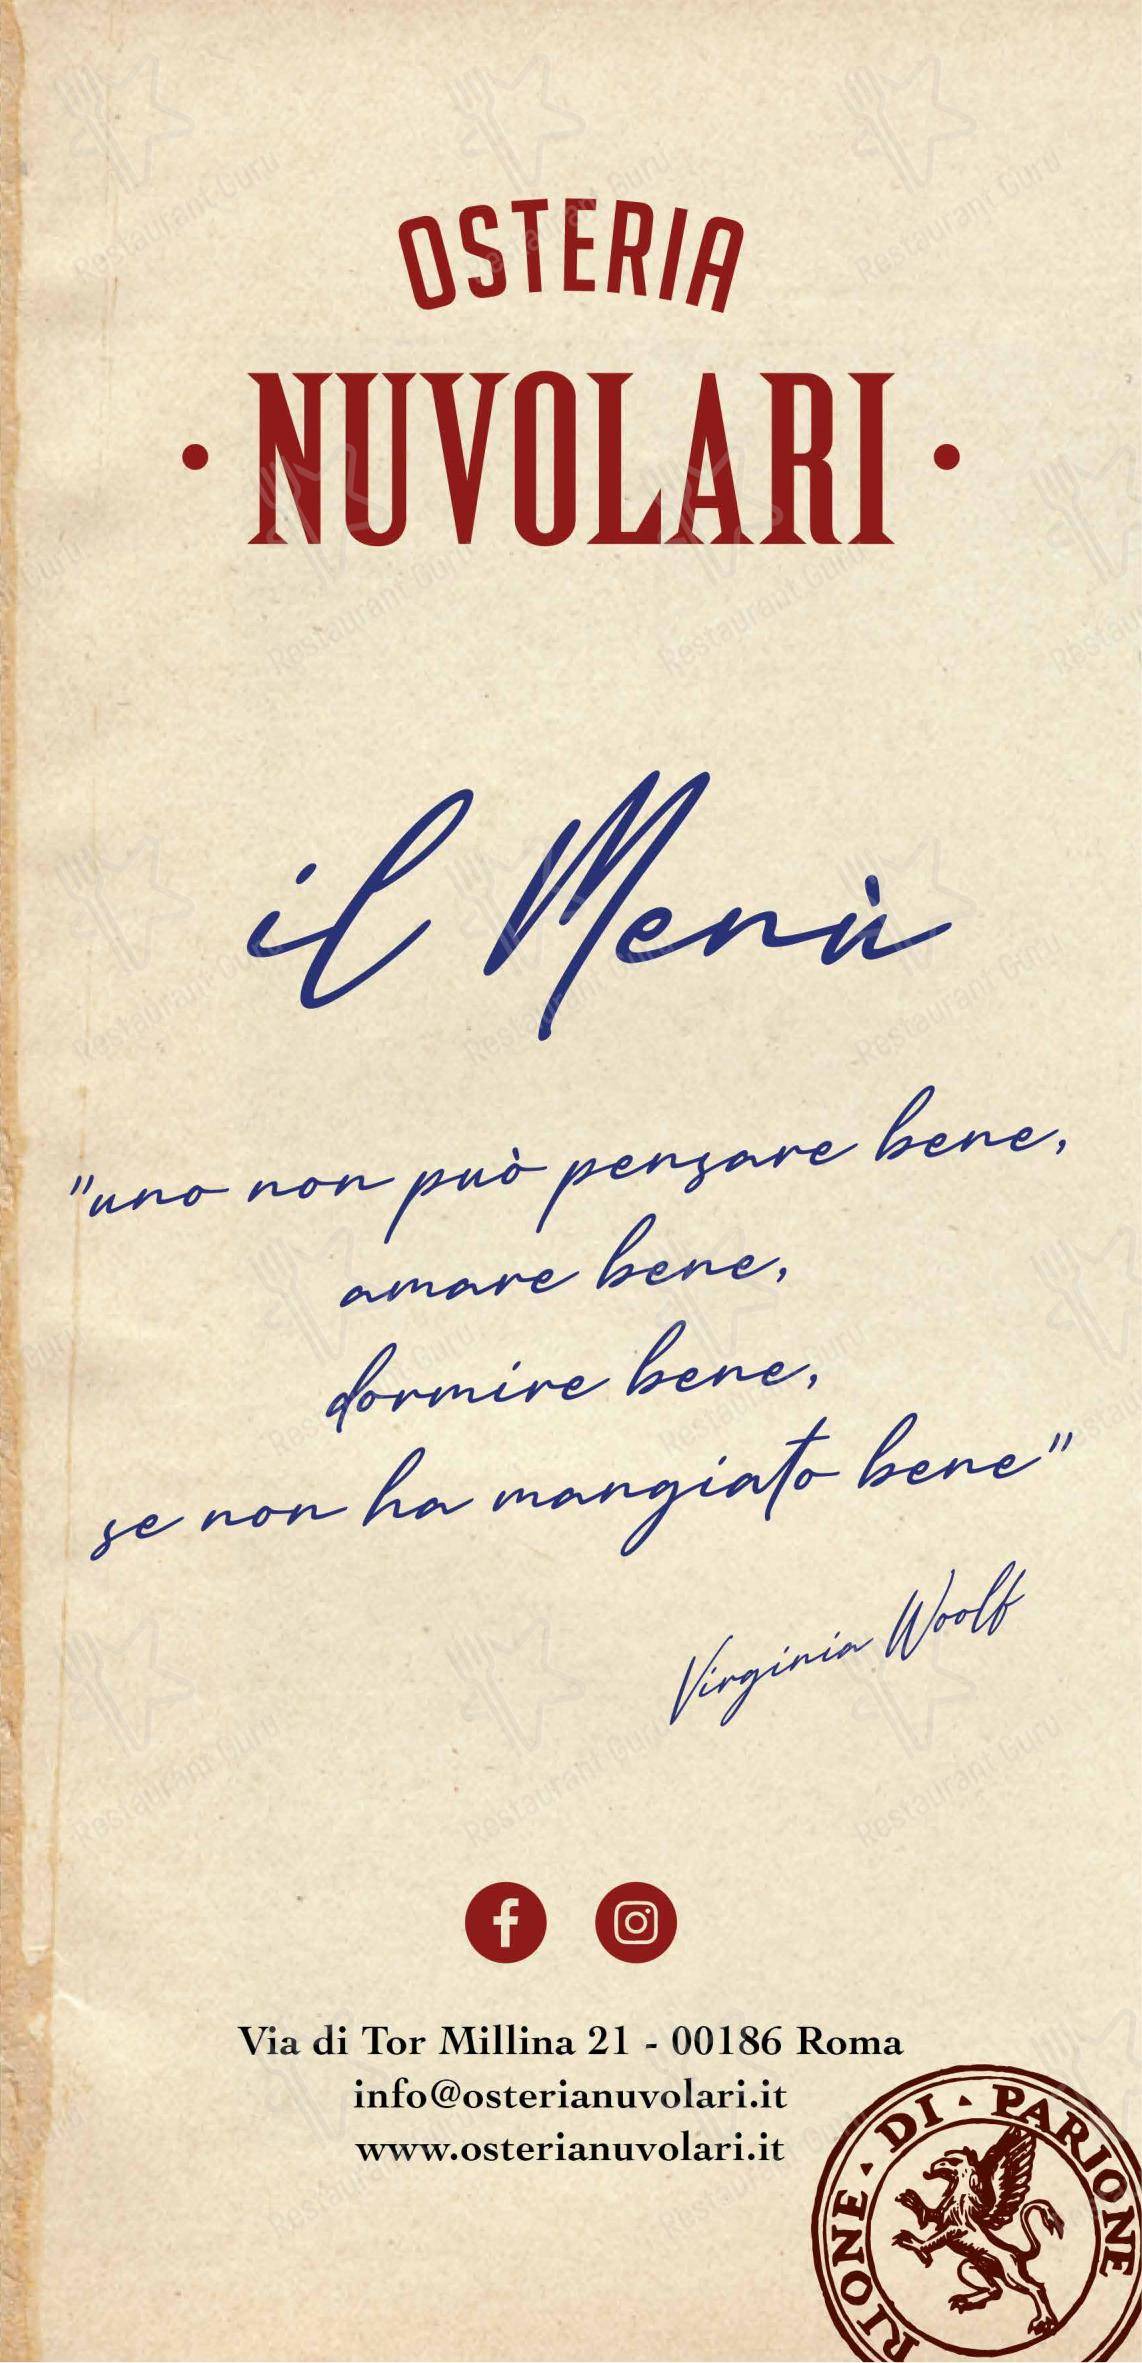 OSTERIA
• NUVOLARI •
il Menù
"uno non può pensare bene,
amare bene,
dormire bene,
se non ha mangiato bene"
Virginia Woolf
Via di Tor Millina 21 - 00186 Roma
info@osterianuvolari.it
www.osterianuvolari.it
RIONE · DI · PARIONE
RIONE
Restaurant Guru